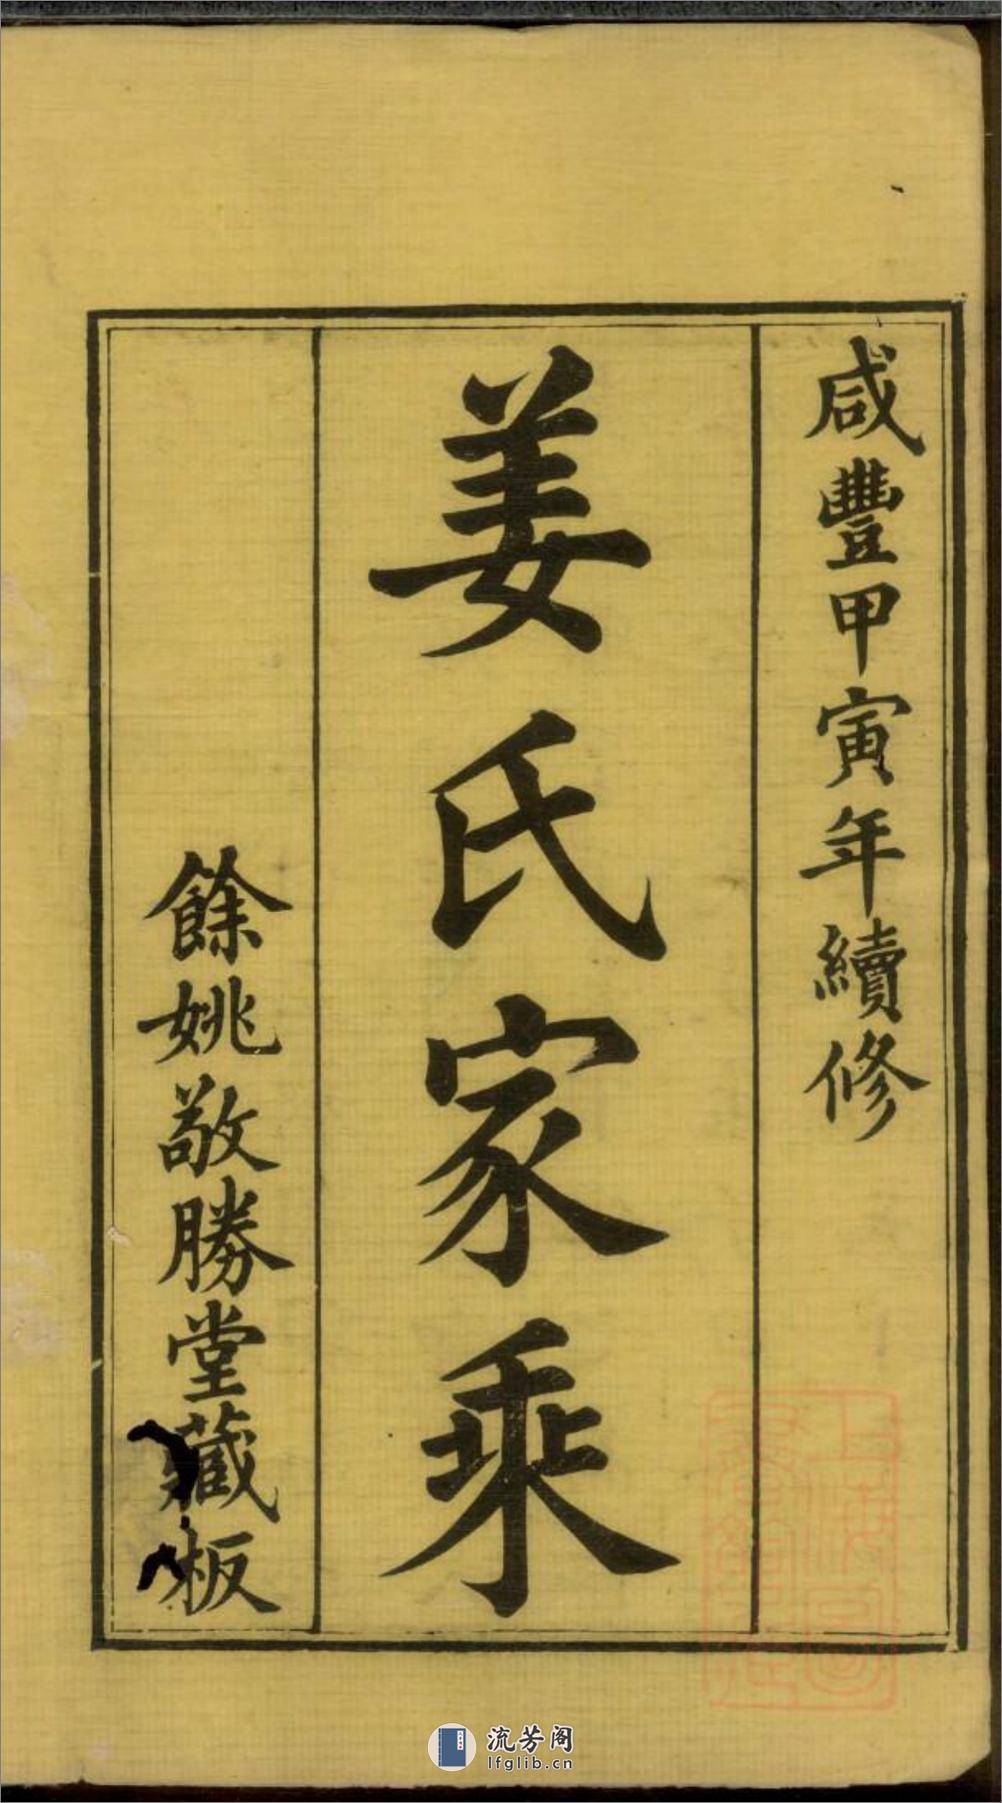 咸豐甲寅年續修
姜氏家乘
餘姚敬勝堂藏板
上海圖書館藏
流芳阁
lfglib.cn